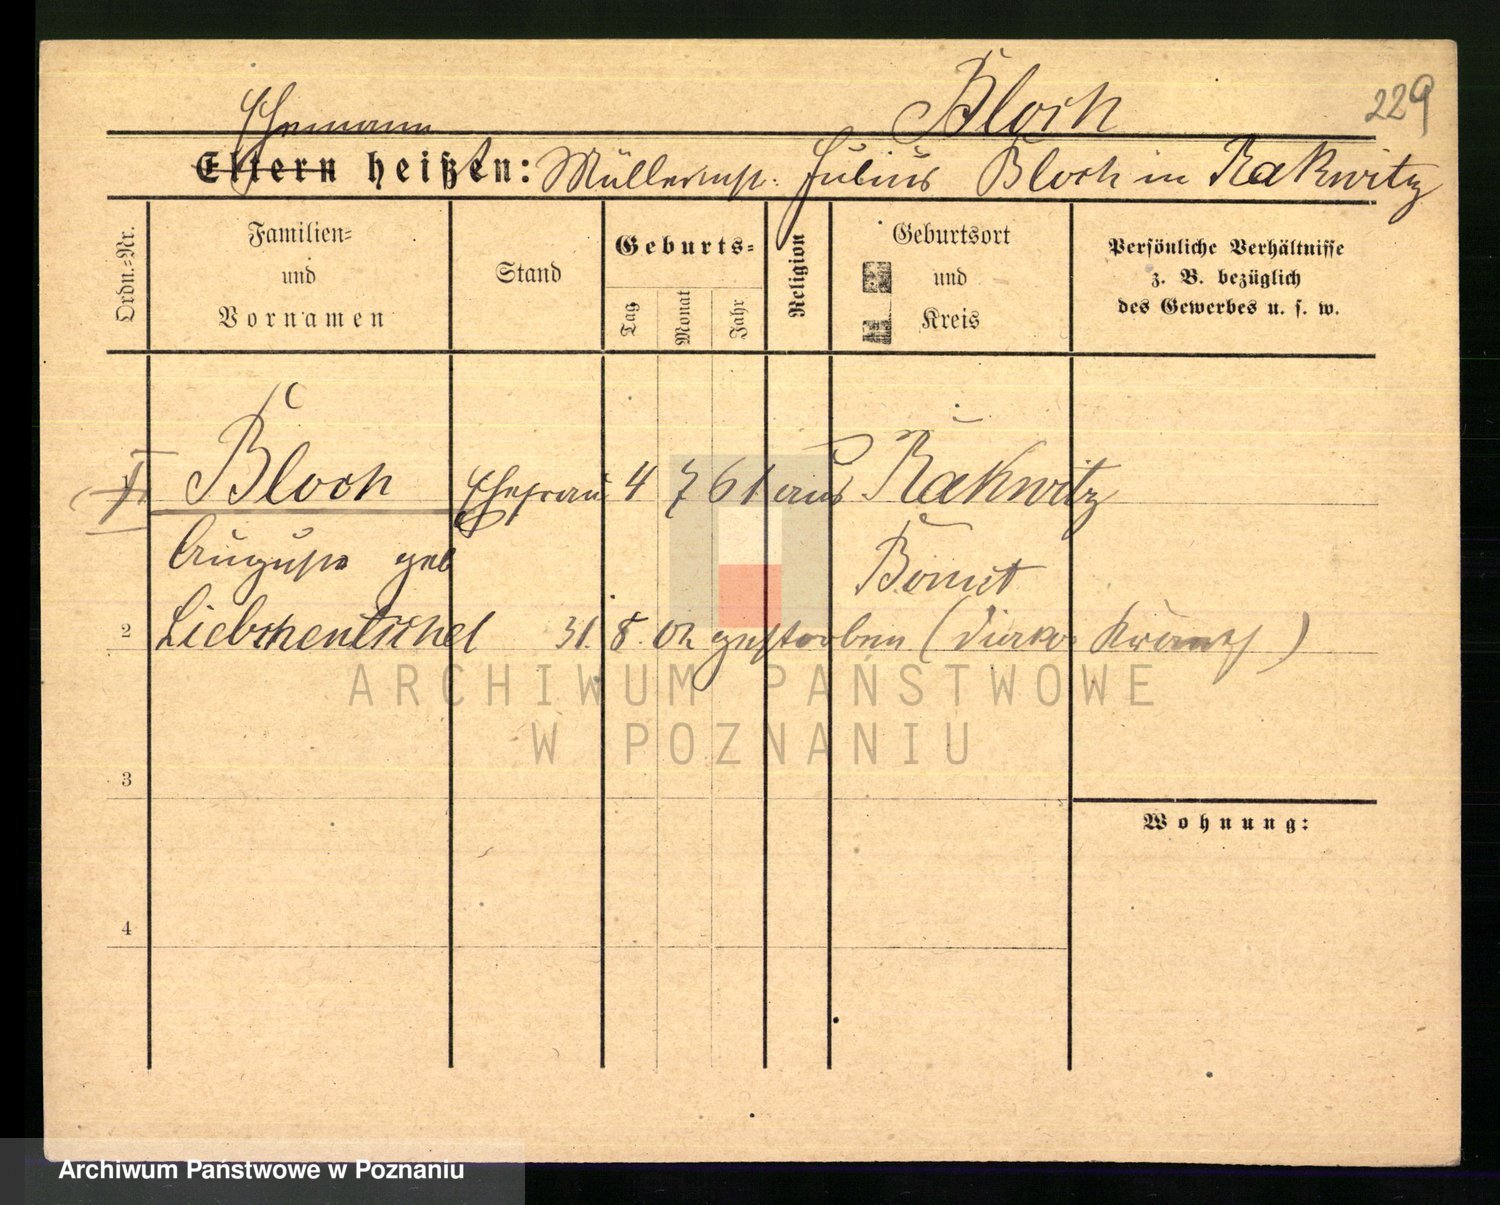 Bloch 229
Ehemann
Eltern heißen: Müllermstr. Julius Bloch in Rakwitz
Ordn.-Nr.
Familien-
und
Vornamen
Stand
Geburts-
Tag
Monat
Jahr
Religion
Geburtsort
und
Kreis
Persönliche Verhältnisse
z. B. bezüglich
des Gewerbes u. s. w.
Bloch Ehefrau 4 7 61 aus Rakwitz
Auguste geb Bomst
2 Liebchentschel 31. 8. 02 gestorben (
3
Wohnung:
4
ARCHIWUM PAŃSTWOWE
W POZNANIU
Archiwum Państwowe w Poznaniu